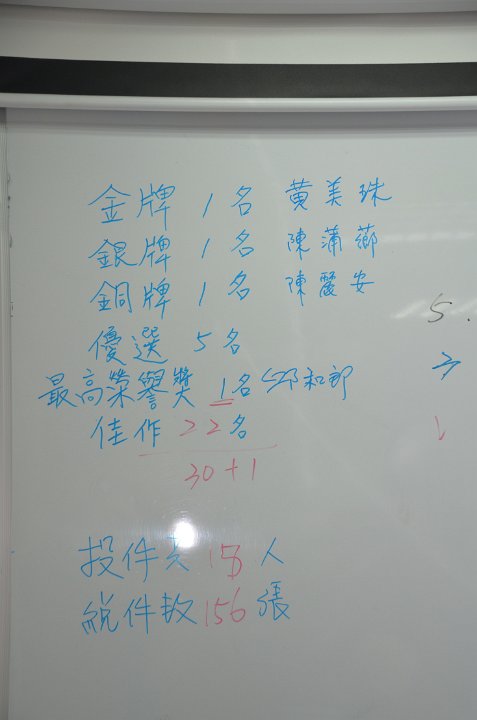 金牌 1名 黄美珠
銀牌 1名 陳蒲薌
銅牌 1名 陳麗安
優選 5名
最高榮譽獎 1名 邱和郎
佳作 22名
30+1
投件 人
総件數 156 張
5.